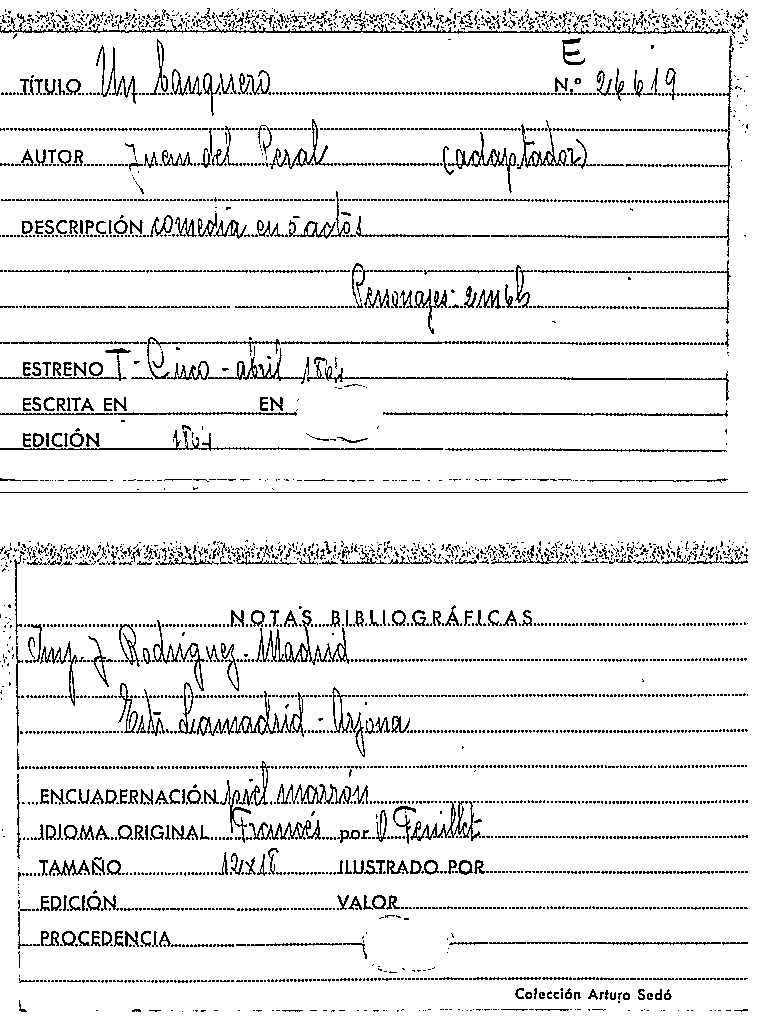 E
TÍTULO Un banquero N.º 26619
AUTOR Juan del Peral (adaptador)
DESCRIPCIÓN comedia en 5 actos
Personajes: 2m6h
ESTRENO T- Circo - abril 1864
ESCRITA EN EN
EDICIÓN 1864
NOTAS BIBLIOGRÁFICAS
Imp. J Rodriguez - Madrid
Estr Lamadrid - Arjona
ENCUADERNACIÓN piel marrón
IDIOMA ORIGINAL Francés por O Feuillet
TAMAÑO 12x18 ILUSTRADO POR
EDICIÓN VALOR
PROCEDENCIA
Colección Arturo Sedó